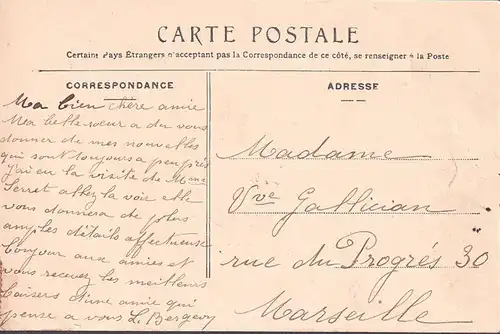 CARTE POSTALE
Certains Pays Étrangers n'acceptant pas la Correspondance de ce côté, se renseigner à la Poste
CORRESPONDANCE
Ma bien chère amie
Ma belle sœur a du vous
donner de mes nouvelles
qui sont toujours a peu près
J'ai eu la visite de Mme
allez la voir elle
vous donnera de plus
amples détails affectueuse
bonjour aux amies et
vous recevez les meilleurs
baisers d'une amie qui
pense a vous L. Bergeron
ADRESSE
Madame
Vve Gallician
rue du Progrés 30
Marseille